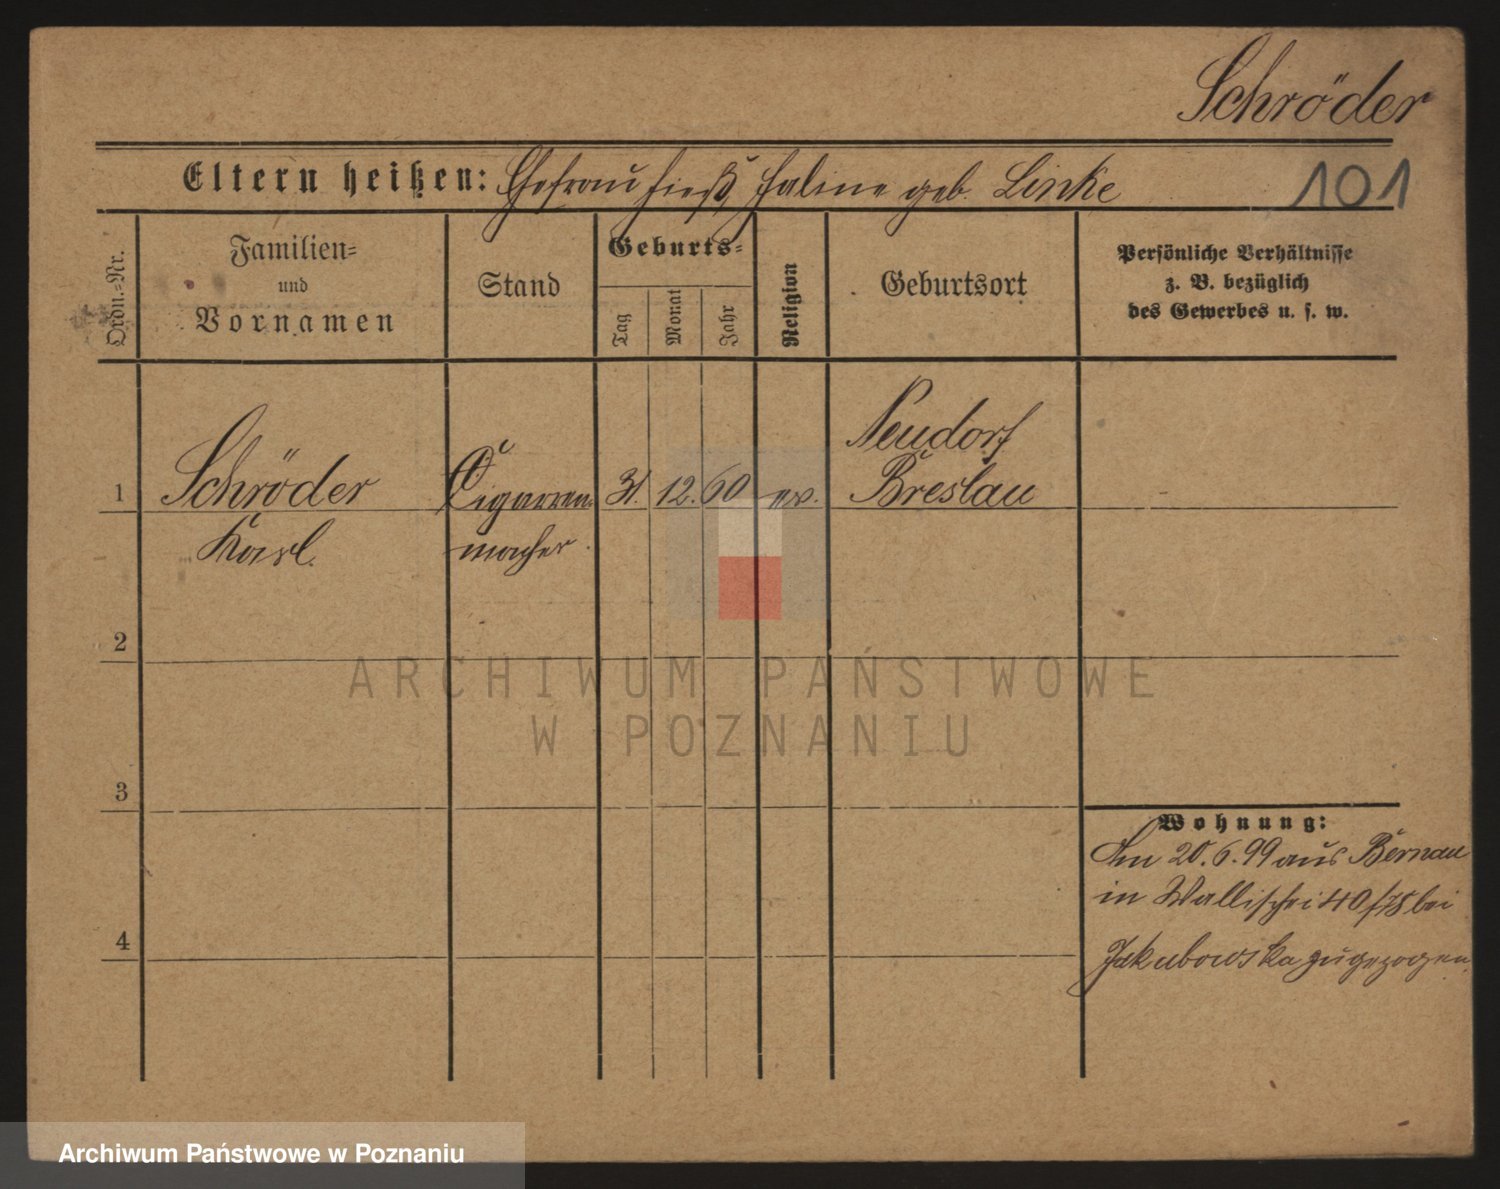 Schröder
Eltern heißen: Ehefrau hieß geb. Linke
101
Ordn.-Nr.
Familien-
und
Vornamen
Stand
Geburts-
Tag
Monat
Jahr
Religion
Geburtsort
Persönliche Verhältnisse
z. B. bezüglich
des Gewerbes u. s. w.
1
Schröder
Karl.
Cigarren
macher
31.
12.
60
ev.
Neudorf
Breslau
2
3
4
Wohnung:
Am 20.6.99 aus Bernau
in Wallischei 40/75 bei
Jakubowska zugezogen
ARCHIWUM PAŃSTWOWE
W POZNANIU
Archiwum Państwowe w Poznaniu